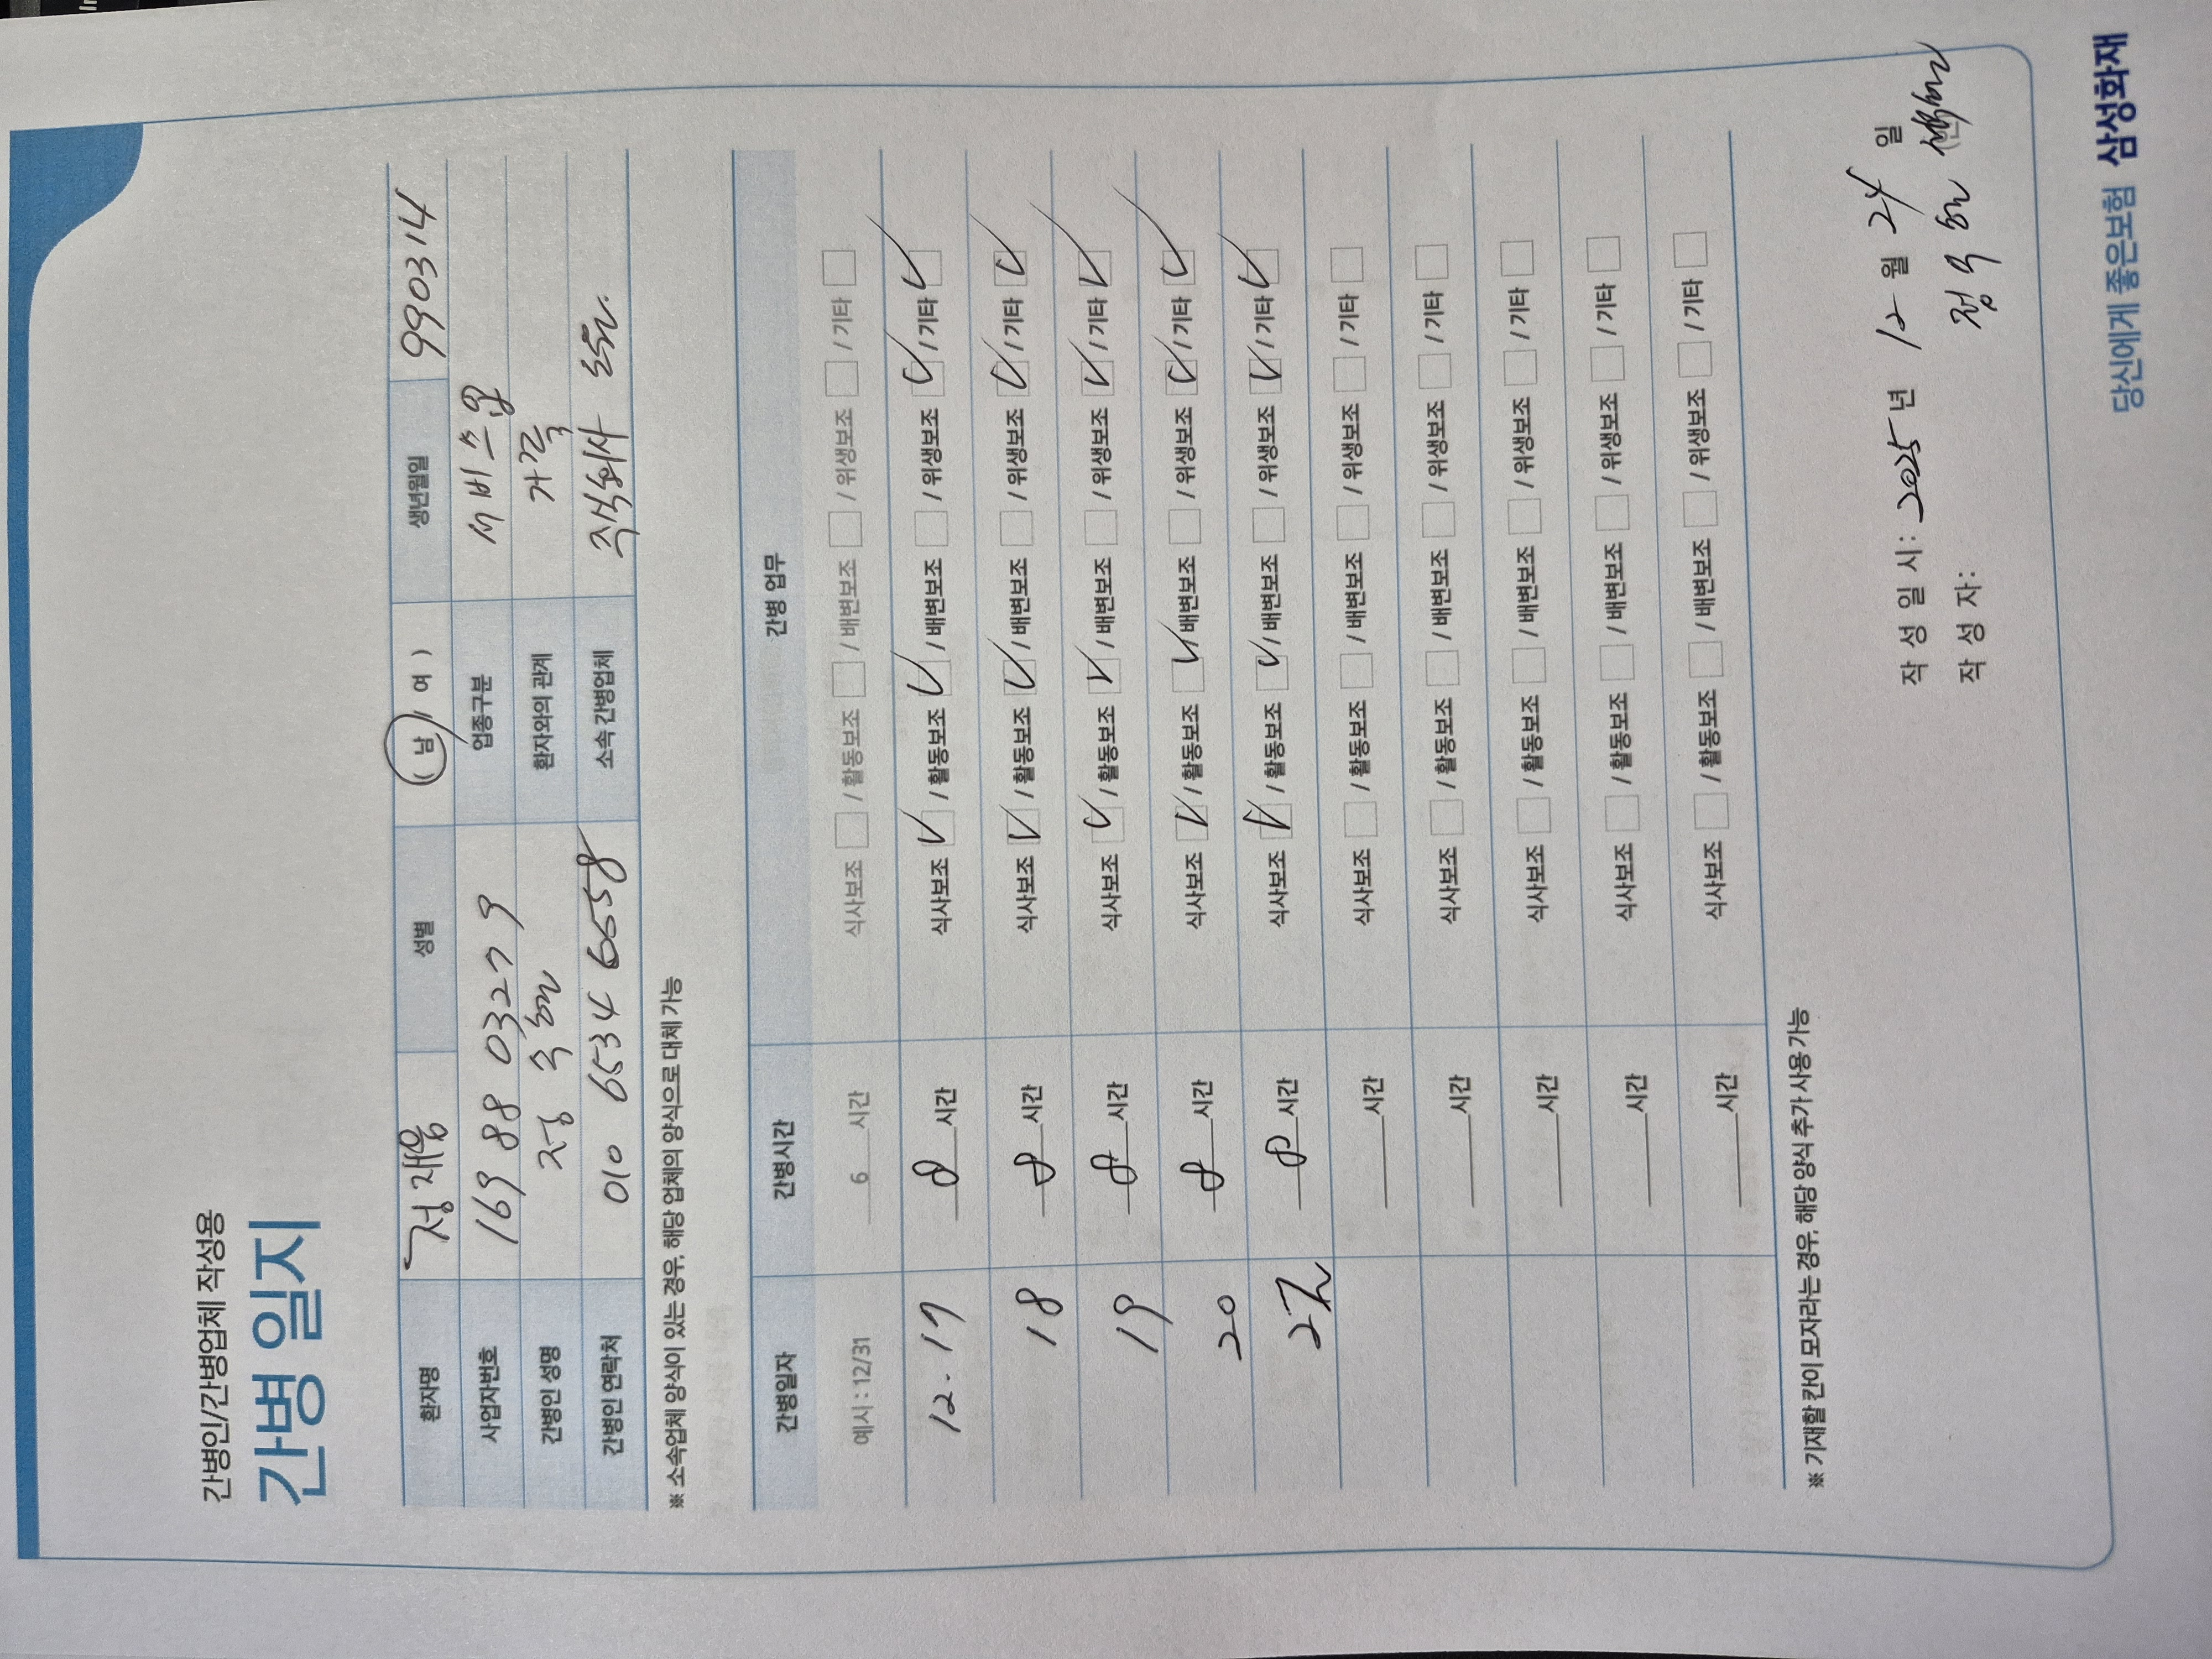 간병인/간병업체 작성용
간병 일지
환자명 정재욱 성별 (남 / 여) 생년월일 990314
사업자번호 169 88 03279 업종구분 서비스업
간병인 성명 정숙 환자와의 관계 가족
간병인 연락처 010 6534 6658 소속 간병업체
※ 소속업체 양식이 있는 경우, 해당 업체의 양식으로 대체 가능
간병일자 간병시간 간병 업무
예시 : 12/31 6 시간 식사보조 / 활동보조 / 배변보조 / 위생보조 / 기타
12. 17 8 시간 식사보조 ✓ / 활동보조 ✓ / 배변보조 / 위생보조 ✓ / 기타 ✓
18 8 시간 식사보조 ✓ / 활동보조 ✓ / 배변보조 / 위생보조 ✓ / 기타 ✓
19 8 시간 식사보조 ✓ / 활동보조 ✓ / 배변보조 / 위생보조 ✓ / 기타 ✓
20 8 시간 식사보조 ✓ / 활동보조 ✓ / 배변보조 / 위생보조 ✓ / 기타 ✓
8 시간 식사보조 ✓ / 활동보조 ✓ / 배변보조 / 위생보조 ✓ / 기타 ✓
시간 식사보조 / 활동보조 / 배변보조 / 위생보조 / 기타
시간 식사보조 / 활동보조 / 배변보조 / 위생보조 / 기타
시간 식사보조 / 활동보조 / 배변보조 / 위생보조 / 기타
시간 식사보조 / 활동보조 / 배변보조 / 위생보조 / 기타
시간 식사보조 / 활동보조 / 배변보조 / 위생보조 / 기타
※ 기재할 칸이 모자라는 경우, 해당 양식 추가 사용 가능
작 성 일 시 : 2025 년 12 월 24 일
작 성 자 : 정숙
당신에게 좋은보험 삼성화재